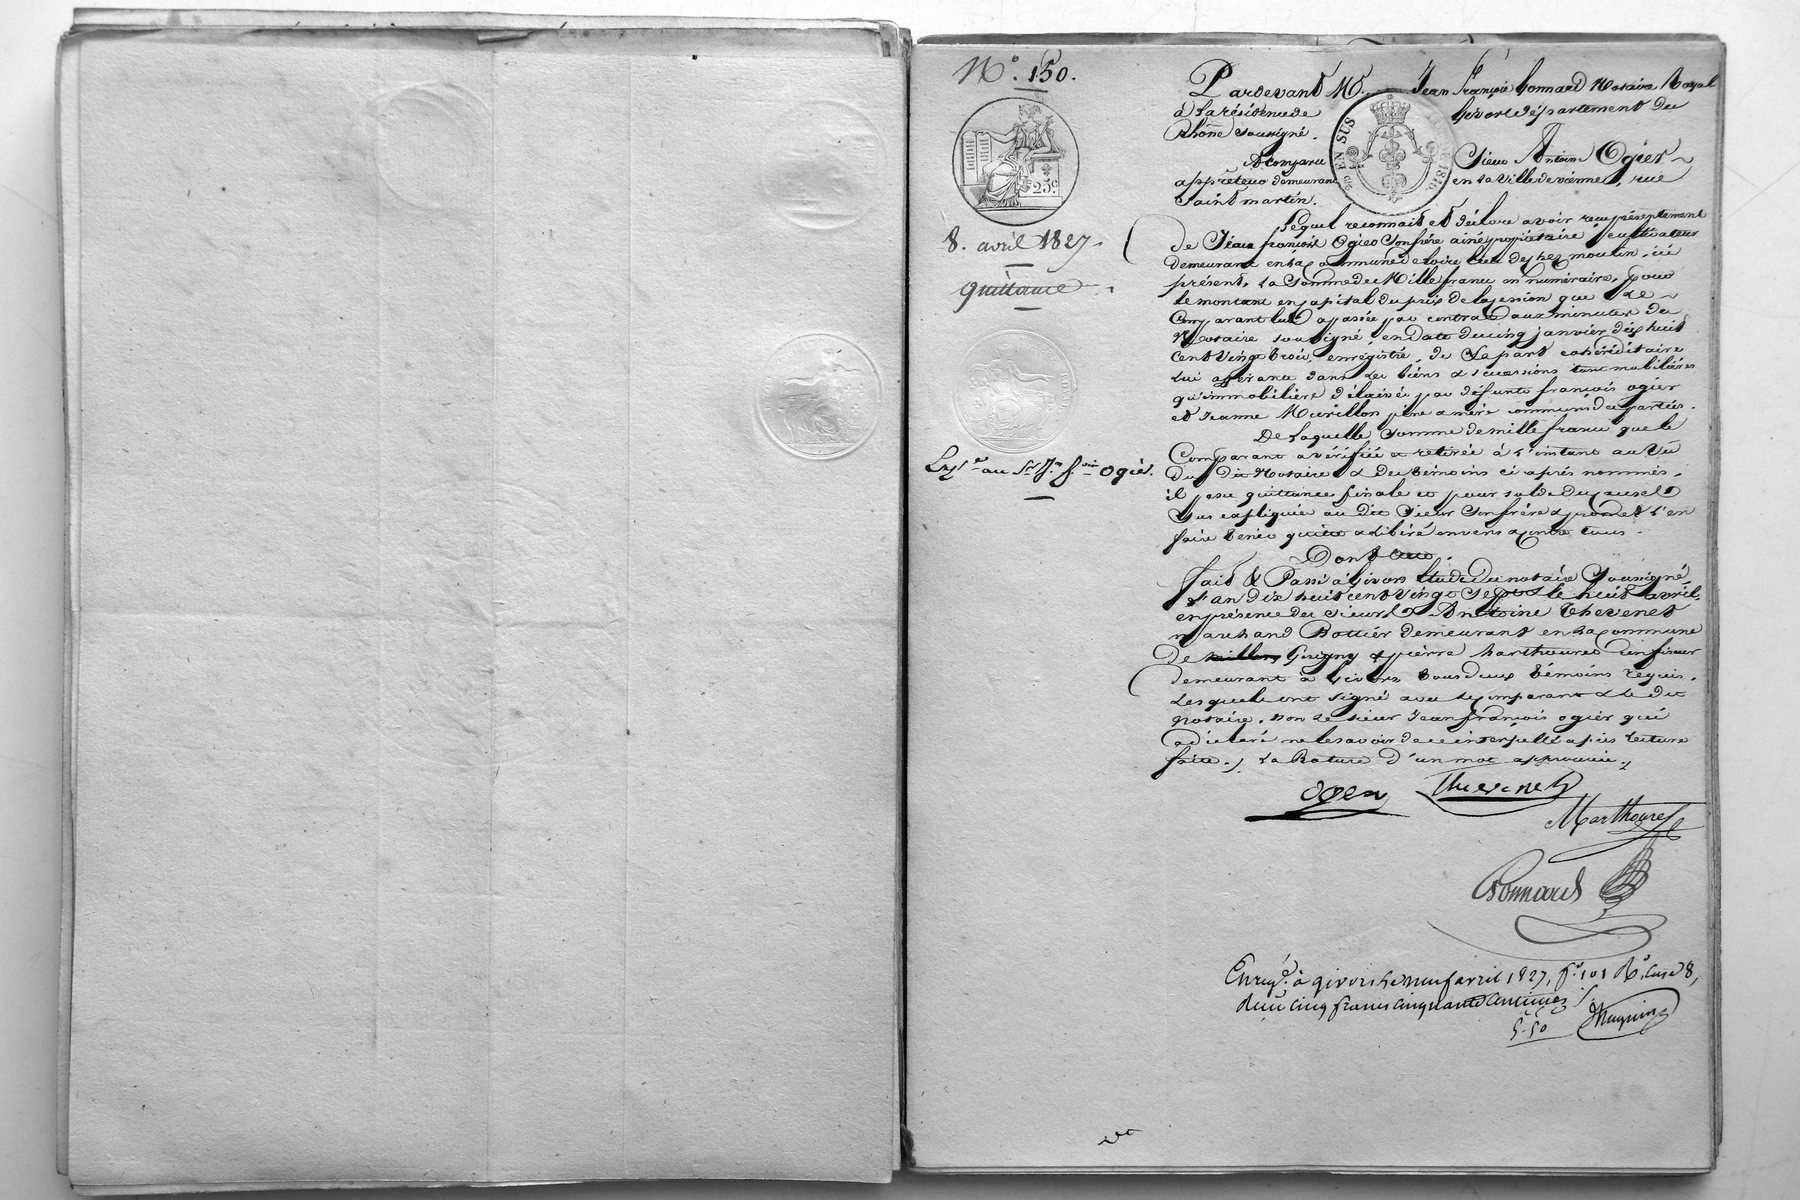 N.° 150.
25.c
8. avril 1827.
Quittance
Exp.ée au Sr. Jn. f.ois Ogier.
Pardevant Me. Jean François bonnard Notaire Royal
à la résidence de Givors département du
Rhône soussigné.
EN SUS
A Comparu Sieur Antoine Ogier
apprêteur demeurant en la ville de vienne, rue
Saint martin.
Lequel reconnait et déclare avoir reçu présentement
De Jean françois Ogier son frère ainé propriétaire cultivateur
demeurant en la commune de loire lieu de chez moulin, ici
présent, La Somme de Mille francs en numéraire, pour
le montant en capital du prix de la cession que le
Comparant lui a passée par contrat aux minutes du
Notaire soussigné, en date du cinq janvier dix huit
cent vingt trois, enregistré, de la part cohéréditaire
lui afférant dans les biens & successions tant mobilières
qu'immobilières délaissés par défunts françois ogier
et Jeanne Murillon père & mère communs des parties.
De laquelle somme de mille francs que le
Comparant a vérifiée et retirée à l'instant au Vu
Du dit Notaire & des témoins ci après nommés,
il passe quittance finale et pour solde des causes
Sus expliquées au dit Sieur Son frère & promet l'en
faire tenir quitte & libéré envers & contre tous.
Dont acte.
fait & Passé à Givors Etude du notaire Soussigné
L'an dix huit cent vingt sept & le huit avril,
en présence des sieurs Antoine thevenet
marchand Bottier demeurant en la commune
De Grigny & pierre marthoures
demeurant à Givors tous deux témoins requis,
Lesquels ont signé avec le comparant & le dit
notaire, non le sieur Jean françois ogier qui
a déclaré ne le savoir de ce interpellé après lecture
faite. La Rature d'un mot approuvée.
Ogier Thevenet
Marthoures
Bonnard
Enregé. à givors le neuf avril 1827, f.° 101 R.° case 8,
Reçu cinq francs cinquante centimes
5.50 Huguin